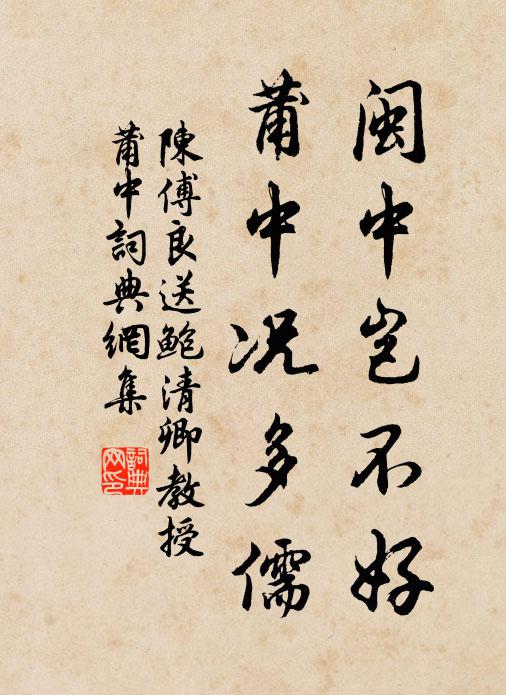 閩中岂不好
莆中况多儒
陳傅良送鲍清卿教授
莆中詞典網集
詞典
网印